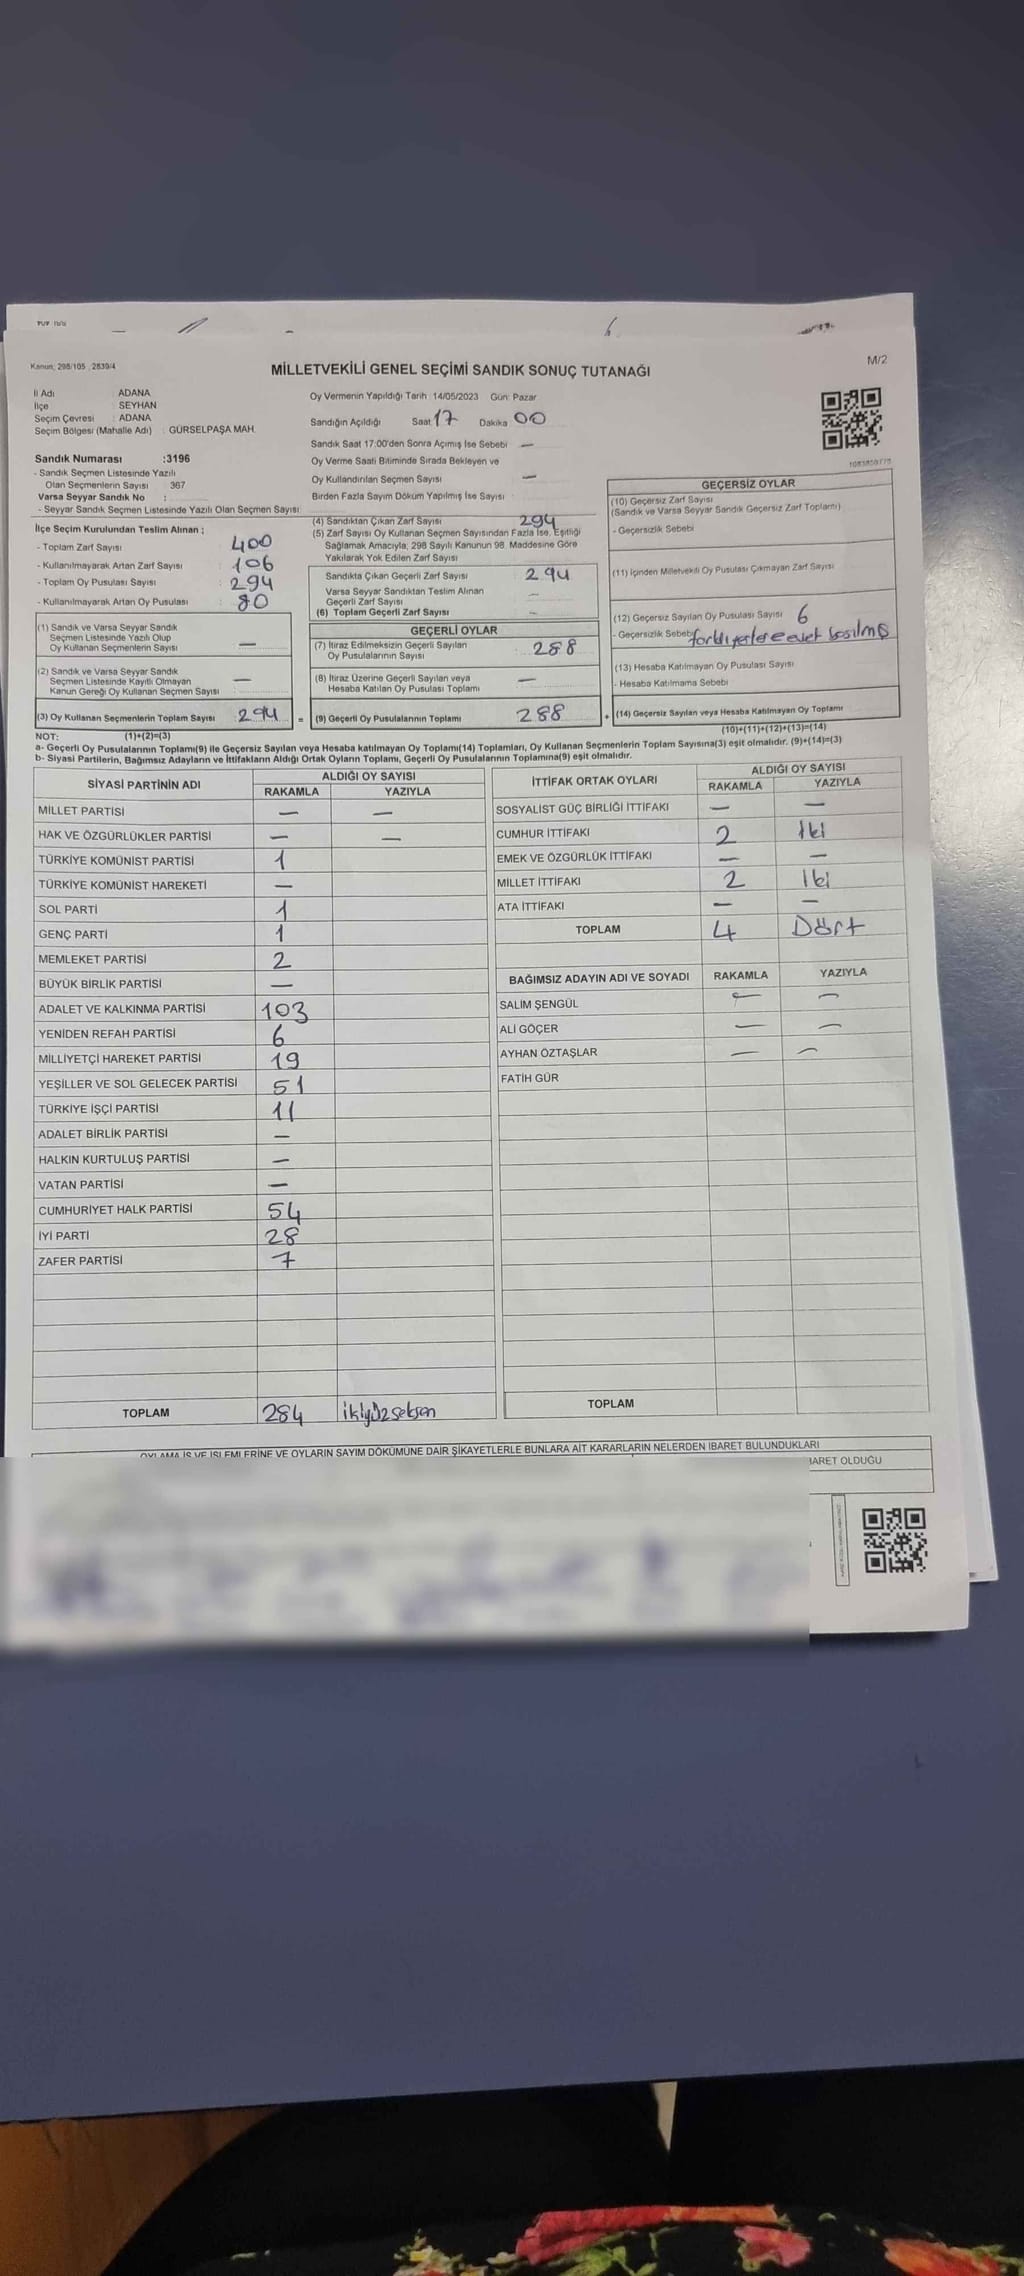 Kanun, 298/105 , 2839/4
MİLLETVEKİLİ GENEL SEÇİMİ SANDIK SONUÇ TUTANAĞI
M/2
İl Adı : ADANA
İlçe : SEYHAN
Seçim Çevresi : ADANA
Seçim Bölgesi (Mahalle Adı) : GÜRSELPAŞA MAH.
Sandık Numarası :3196
- Sandık Seçmen Listesinde Yazılı
Olan Seçmenlerin Sayısı : 367
Varsa Seyyar Sandık No :
- Seyyar Sandık Seçmen Listesinde Yazılı Olan Seçmen Sayısı :
İlçe Seçim Kurulundan Teslim Alınan ;
- Toplam Zarf Sayısı : 400
- Kullanılmayarak Artan Zarf Sayısı : 106
- Toplam Oy Pusulası Sayısı : 294
- Kullanılmayarak Artan Oy Pusulası : 80
(1) Sandık ve Varsa Seyyar Sandık
Seçmen Listesinde Yazılı Olup
Oy Kullanan Seçmenlerin Sayısı : —
(2) Sandık ve Varsa Seyyar Sandık
Seçmen Listesinde Kayıtlı Olmayan
Kanun Gereği Oy Kullanan Seçmen Sayısı : —
(3) Oy Kullanan Seçmenlerin Toplam Sayısı : 294
Oy Vermenin Yapıldığı Tarih :14/05/2023 Gün: Pazar
Sandığın Açıldığı Saat 17 Dakika 00
Sandık Saat 17:00'den Sonra Açımış İse Sebebi —
Oy Verme Saati Bitiminde Sırada Bekleyen ve
Oy Kullandırılan Seçmen Sayısı —
Birden Fazla Sayım Döküm Yapılmış İse Sayısı :
(4) Sandıktan Çıkan Zarf Sayısı 294
(5) Zarf Sayısı Oy Kullanan Seçmen Sayısından Fazla İse, Eşitliği
Sağlamak Amacıyla, 298 Sayılı Kanunun 98. Maddesine Göre
Yakılarak Yok Edilen Zarf Sayısı
Sandıkta Çıkan Geçerli Zarf Sayısı : 294
Varsa Seyyar Sandıktan Teslim Alınan
Geçerli Zarf Sayısı : —
(6) Toplam Geçerli Zarf Sayısı : —
GEÇERLİ OYLAR
(7) İtiraz Edilmeksizin Geçerli Sayılan
Oy Pusulalarının Sayısı : 288
(8) İtiraz Üzerine Geçerli Sayılan veya
Hesaba Katılan Oy Pusulası Toplamı : —
= (9) Geçerli Oy Pusulalarının Toplamı : 288
GEÇERSİZ OYLAR
(10) Geçersiz Zarf Sayısı
(Sandık ve Varsa Seyyar Sandık Geçersiz Zarf Toplamı)
- Geçersizlik Sebebi
(11) İçinden Milletvekili Oy Pusulası Çıkmayan Zarf Sayısı
(12) Geçersiz Sayılan Oy Pusulası Sayısı 6
- Geçersizlik Sebebi farklı yerlere evet basılmış
(13) Hesaba Katılmayan Oy Pusulası Sayısı
- Hesaba Katılmama Sebebi
+ (14) Geçersiz Sayılan veya Hesaba Katılmayan Oy Toplamı
NOT: (1)+(2)=(3) (10)+(11)+(12)+(13)=(14)
a- Geçerli Oy Pusulalarının Toplamı(9) ile Geçersiz Sayılan veya Hesaba katılmayan Oy Toplamı(14) Toplamları, Oy Kullanan Seçmenlerin Toplam Sayısına(3) eşit olmalıdır. (9)+(14)=(3)
b- Siyasi Partilerin, Bağımsız Adayların ve İttifakların Aldığı Ortak Oyların Toplamı, Geçerli Oy Pusulalarının Toplamına(9) eşit olmalıdır.
SİYASİ PARTİNİN ADI ALDIĞI OY SAYISI
RAKAMLA YAZIYLA
MİLLET PARTİSİ — —
HAK VE ÖZGÜRLÜKLER PARTİSİ — —
TÜRKİYE KOMÜNİST PARTİSİ 1
TÜRKİYE KOMÜNİST HAREKETİ —
SOL PARTİ 1
GENÇ PARTİ 1
MEMLEKET PARTİSİ 2
BÜYÜK BİRLİK PARTİSİ —
ADALET VE KALKINMA PARTİSİ 103
YENİDEN REFAH PARTİSİ 6
MİLLİYETÇİ HAREKET PARTİSİ 19
YEŞİLLER VE SOL GELECEK PARTİSİ 51
TÜRKİYE İŞÇİ PARTİSİ 11
ADALET BİRLİK PARTİSİ —
HALKIN KURTULUŞ PARTİSİ —
VATAN PARTİSİ —
CUMHURİYET HALK PARTİSİ 54
İYİ PARTİ 28
ZAFER PARTİSİ 7
TOPLAM 284 ikiyüzseksen
İTTİFAK ORTAK OYLARI ALDIĞI OY SAYISI
RAKAMLA YAZIYLA
SOSYALİST GÜÇ BİRLİĞİ İTTİFAKI — —
CUMHUR İTTİFAKI 2 iki
EMEK VE ÖZGÜRLÜK İTTİFAKI — —
MİLLET İTTİFAKI 2 iki
ATA İTTİFAKI — —
TOPLAM 4 Dört
BAĞIMSIZ ADAYIN ADI VE SOYADI RAKAMLA YAZIYLA
SALİM ŞENGÜL — —
ALİ GÖÇER — —
AYHAN ÖZTAŞLAR — —
FATİH GÜR
TOPLAM
OYLAMA İŞ VE İŞLEMLERİNE VE OYLARIN SAYIM DÖKÜMÜNE DAİR ŞİKAYETLERLE BUNLARA AİT KARARLARIN NELERDEN İBARET BULUNDUKLARI
BARET OLDUĞU